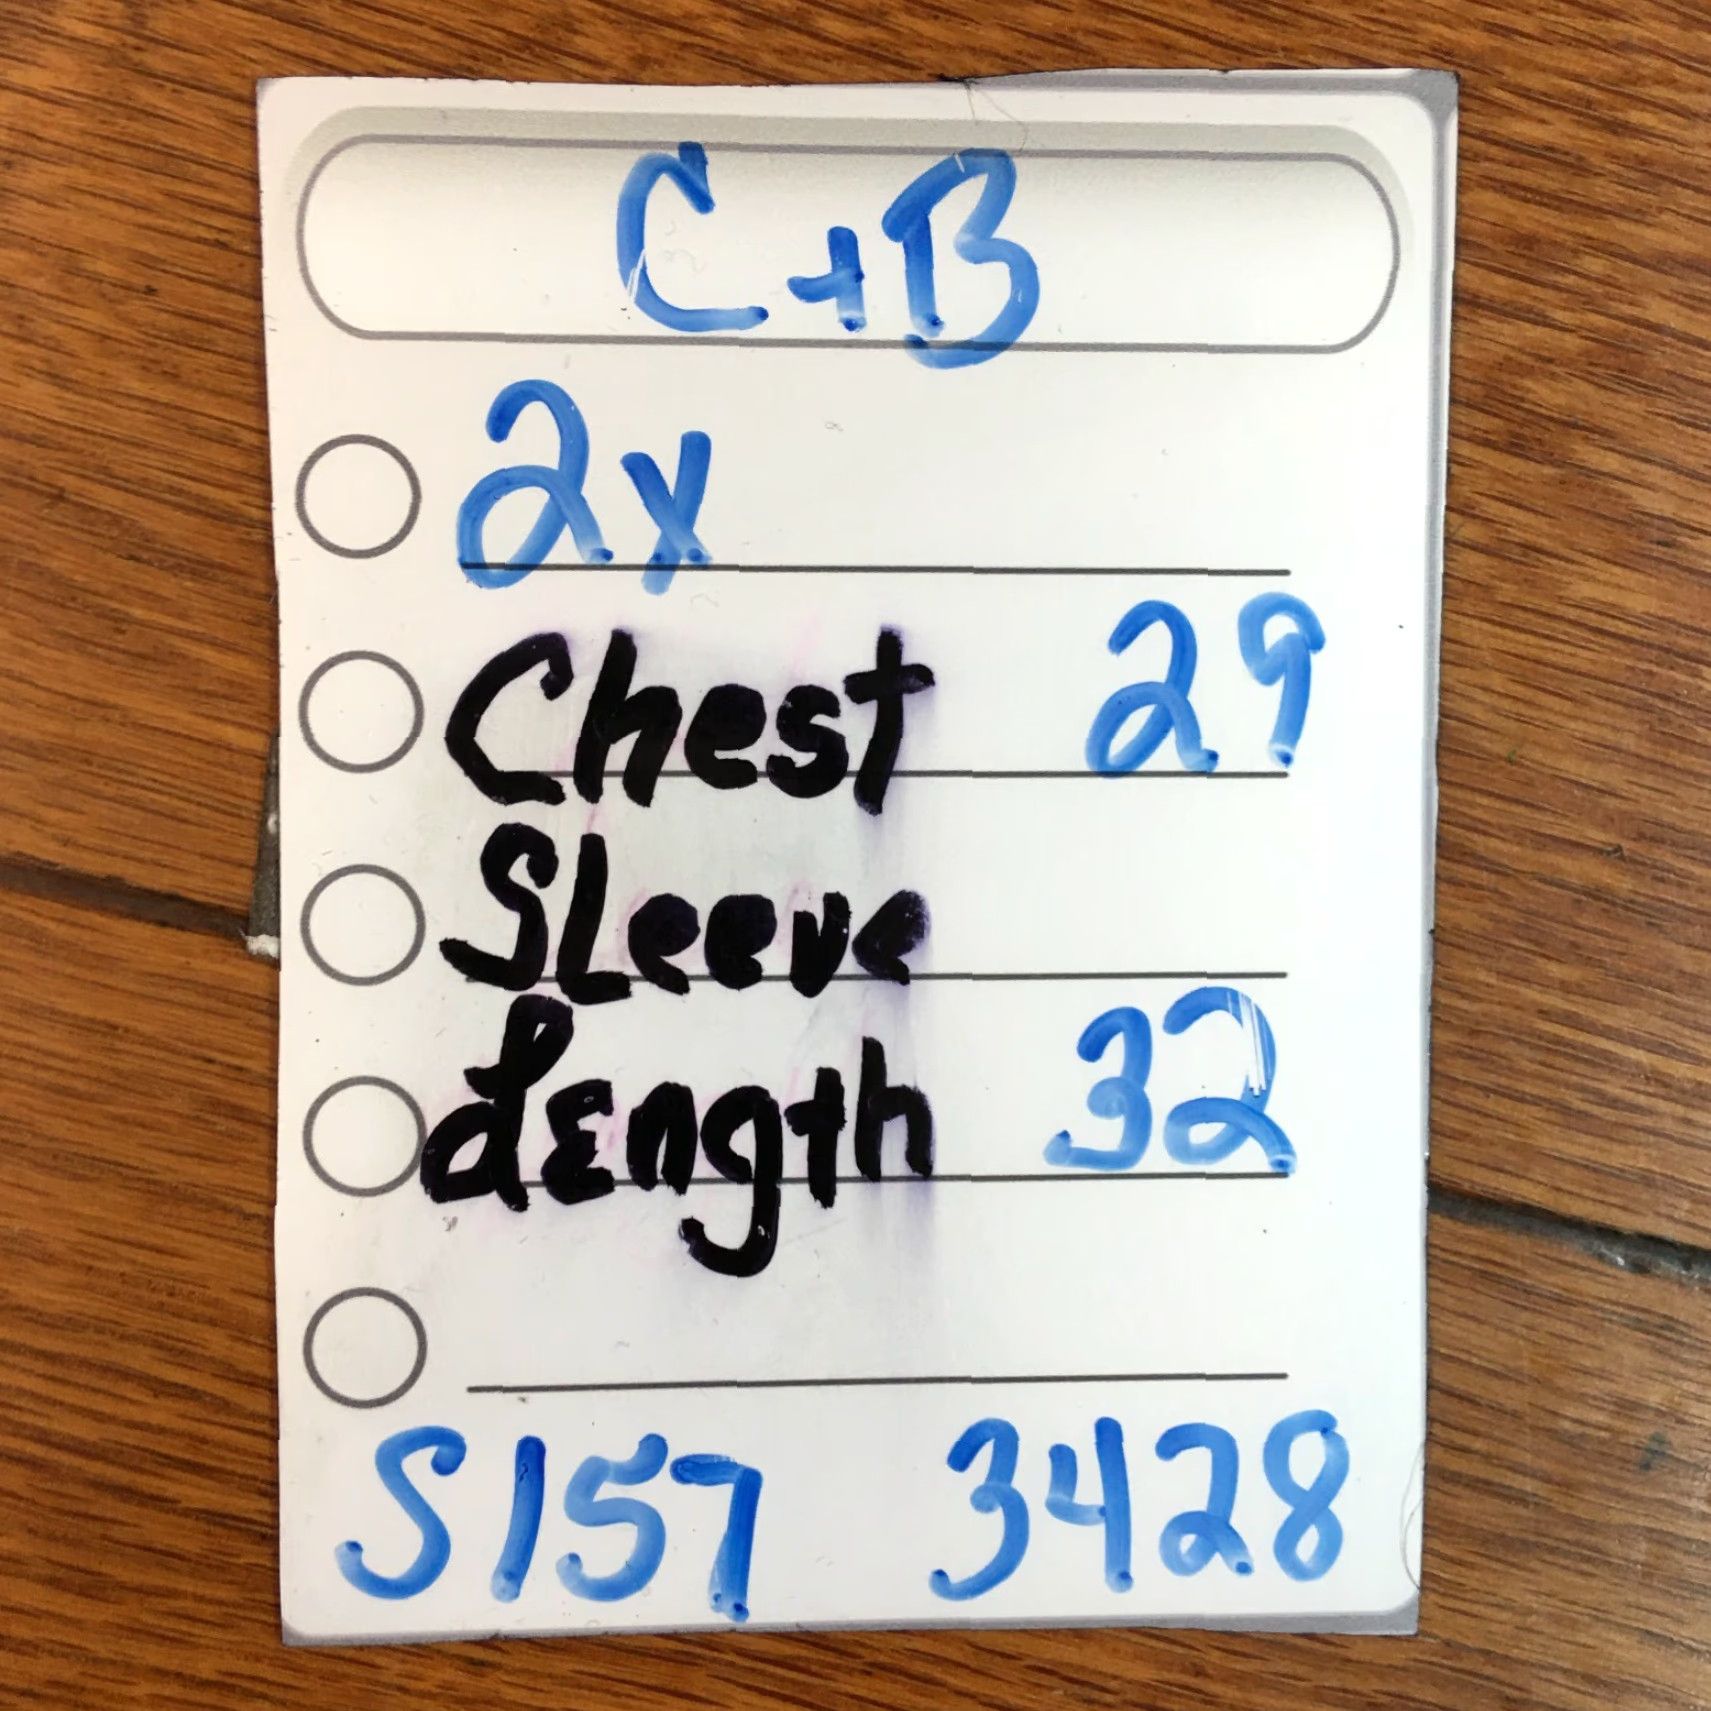 C+B
2x
Chest 29
SLeeve
Length 32
S157 3428